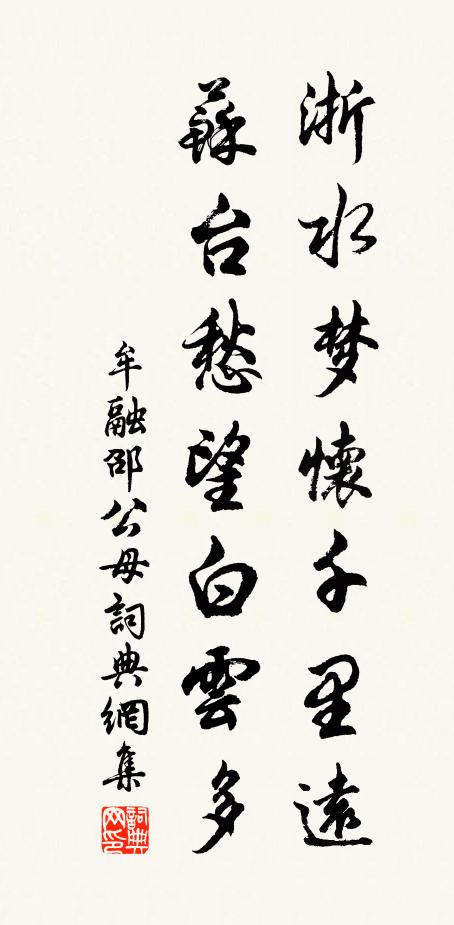 浙水梦懷千里遠
蘇台愁望白雲多
牟融邵公母詞典網集
詞典网印